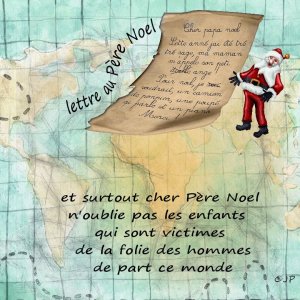 lettre au Père Noel
Cher papa noel
Cette année j'ai été très
très sage, ma maman
m'appelle son petit
ange!
Pour noel, je
voudrais, un camion
de pompier, une poupée
qui parle et un piano
Merci
et surtout cher Père Noel
n'oublie pas les enfants
qui sont victimes
de la folie des hommes
de part ce monde
© JP